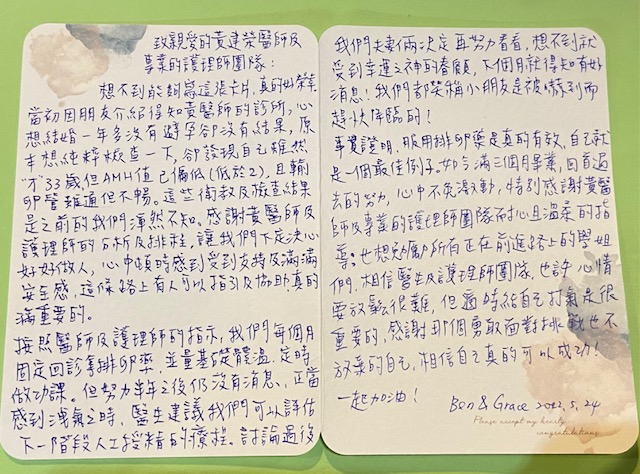 致親愛的黃建榮醫師及
專業的護理師團隊：
想不到能夠寫這張卡片，真的好榮幸
當初因朋友介紹得知黃醫師的診所，心
想結婚一年多沒有避孕卻沒有結果，原
本想純粹檢查一下，卻發現自己雖然
"才"33歲但AMH值已偏低(低於2)，且輸
卵管雖通但不暢。這些衛教及檢查結果
是之前的我們渾然不知，感謝黃醫師及
護理師的分析及排程，讓我們下定決心
好好做人，心中頓時感到受到支持及滿滿
安全感，這條路上有人可以指引及協助真的
滿重要的。
按照醫師及護理師的指示，我們每個月
固定回診拿排卵藥、並量基礎體溫、定時
做功課。但努力半年之後仍沒有消息，正當
感到洩氣之時，醫生建議我們可以評估
下一階段人工授精的療程。討論過後
我們夫妻倆決定再努力看看，想不到就
受到幸運之神的眷顧，下個月就得知有好
消息！我們都笑稱小朋友是被嚇到而
趕快降臨的！
事實證明，服用排卵藥是真的有效，自己就
是一個最佳例子。如今滿三個月畢業，回首過
去的努力，心中不免激動，特別感謝黃醫
師及專業的護理師團隊耐心且溫柔的指
導；也想勉勵所有正在前進路上的學姐
們，相信醫生及護理師團隊，也許心情
要放鬆很難，但適時給自己打氣是很
重要的，感謝那個勇敢面對挑戰也不
放棄的自己，相信自己真的可以成功！
一起加油！ Ben & Grace 2022.5.24
Please accept my hearty
congratulations